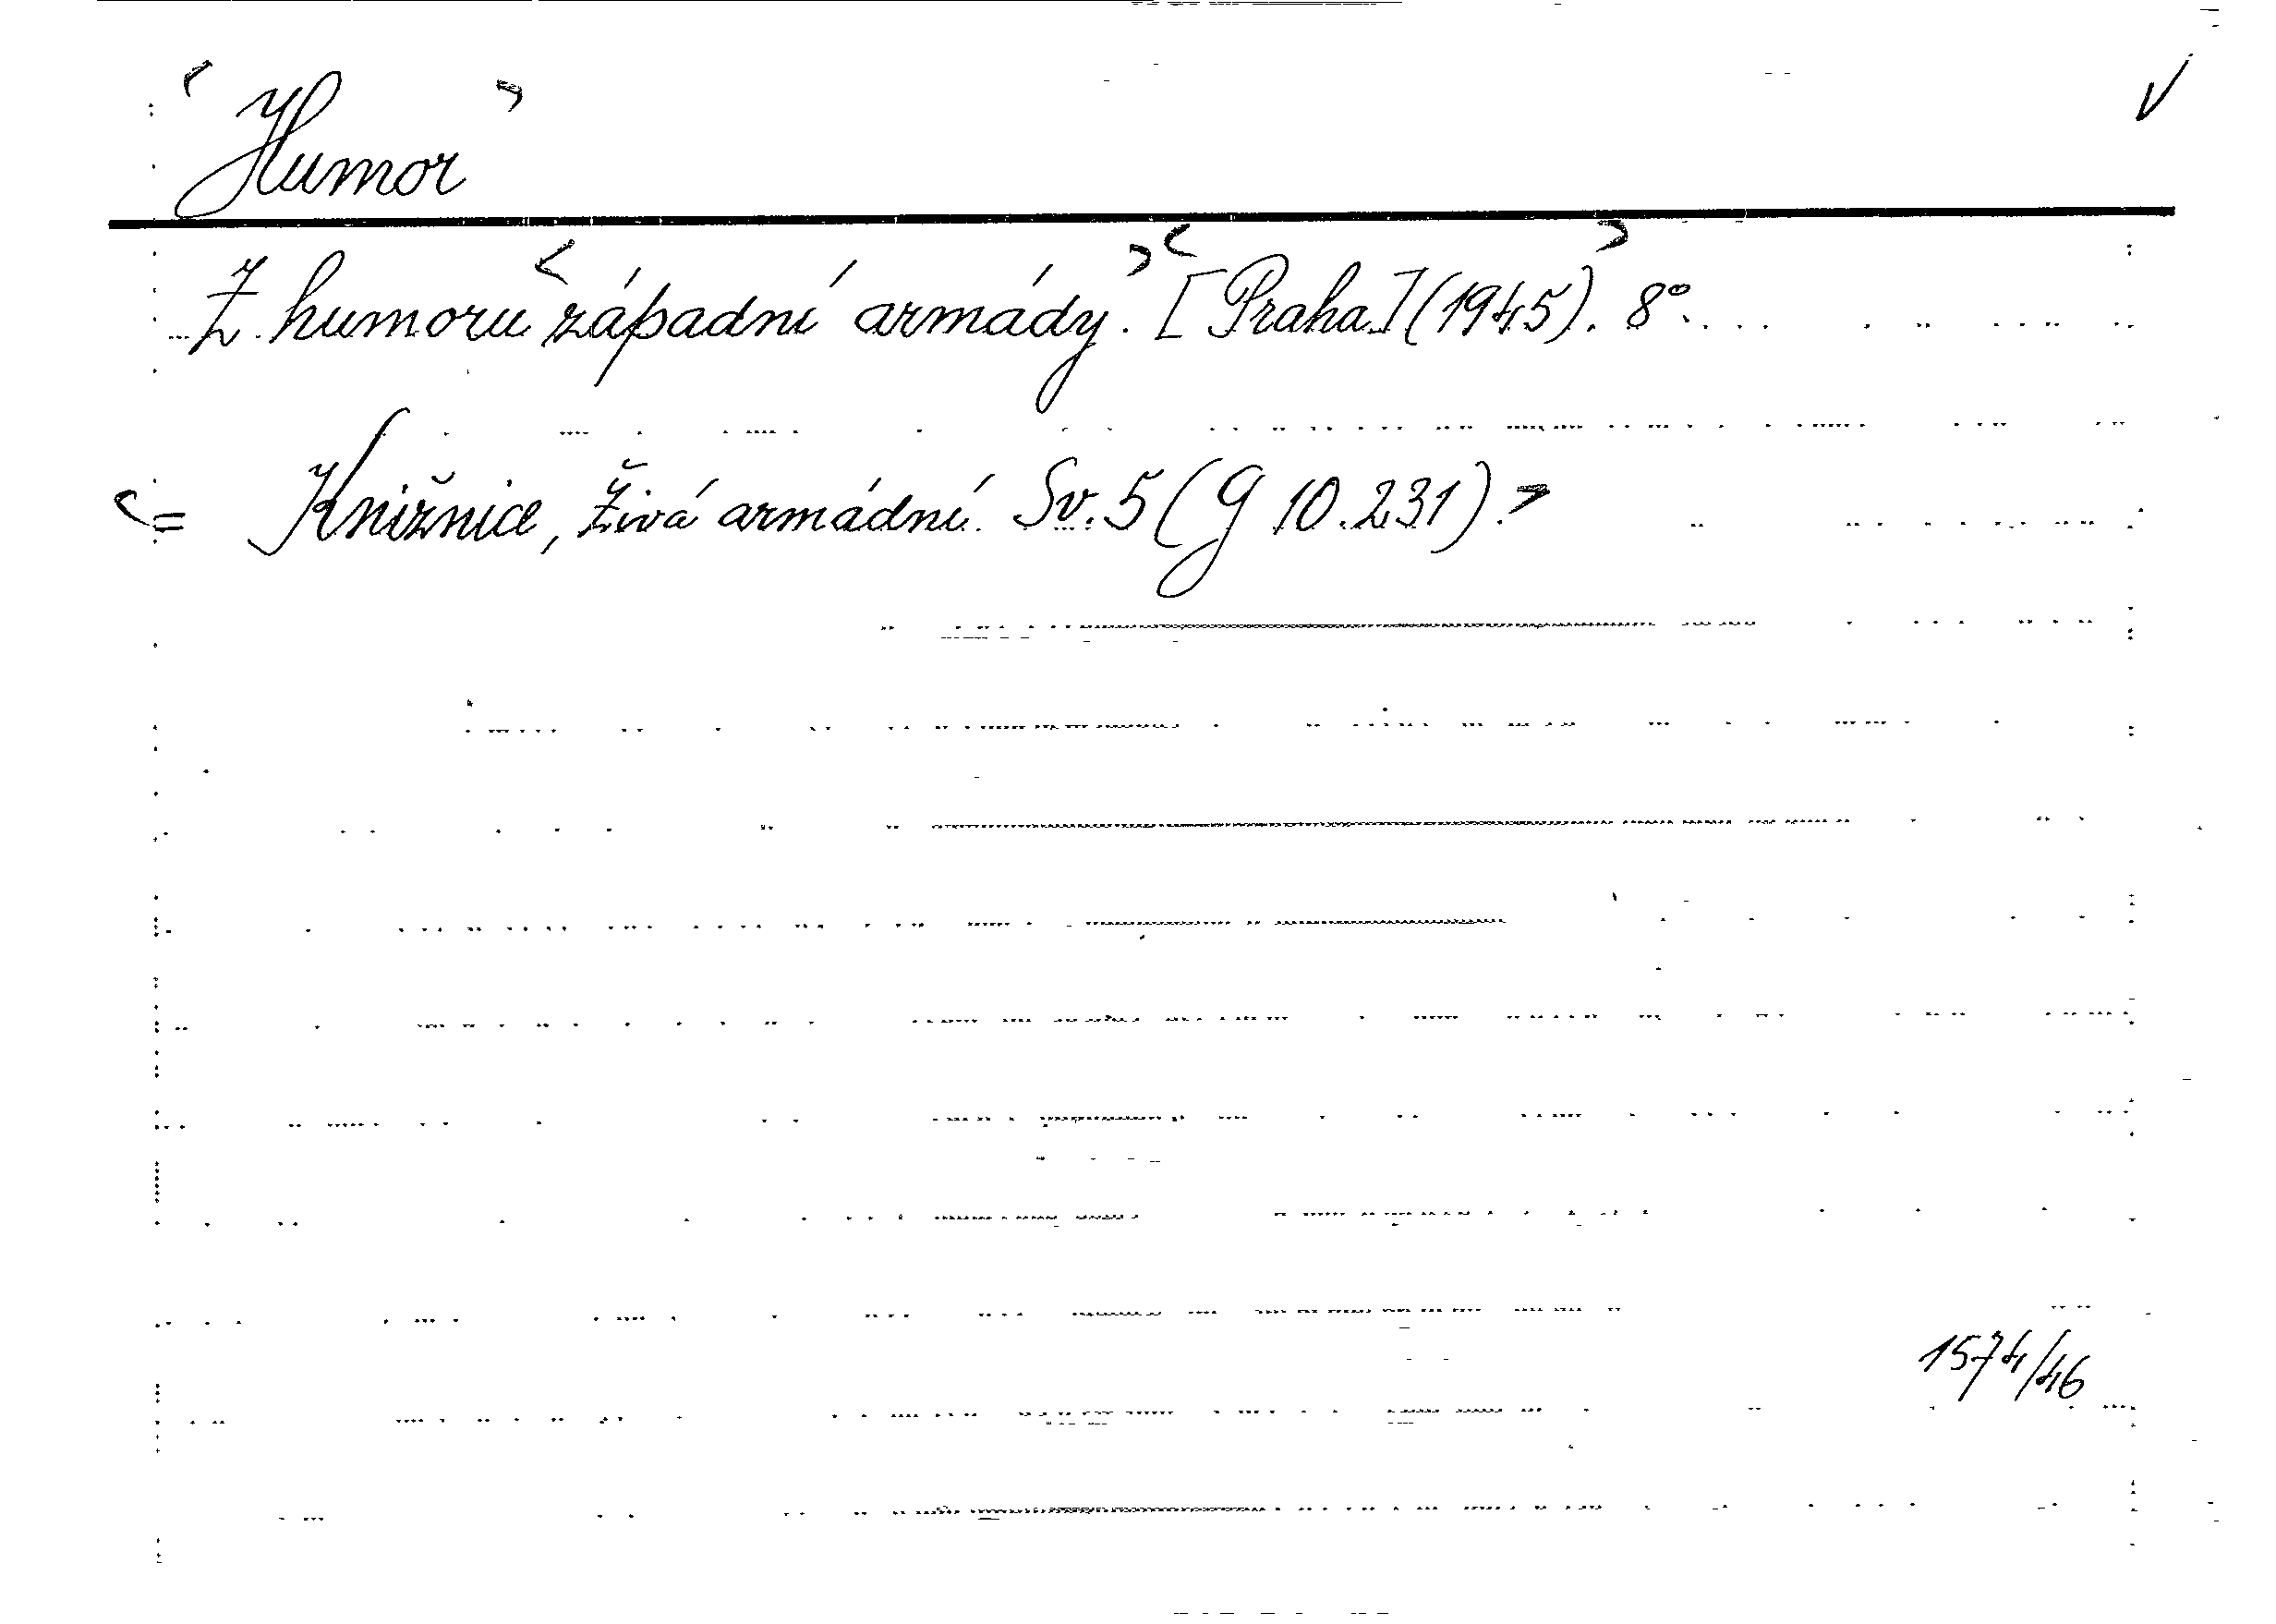 <Humor> √
Z humoru <západní armády.> <[Praha](1945).> 8°.
<= Knižnice, živá armádní. Sv. 5 (G 10.231).>
1574/46